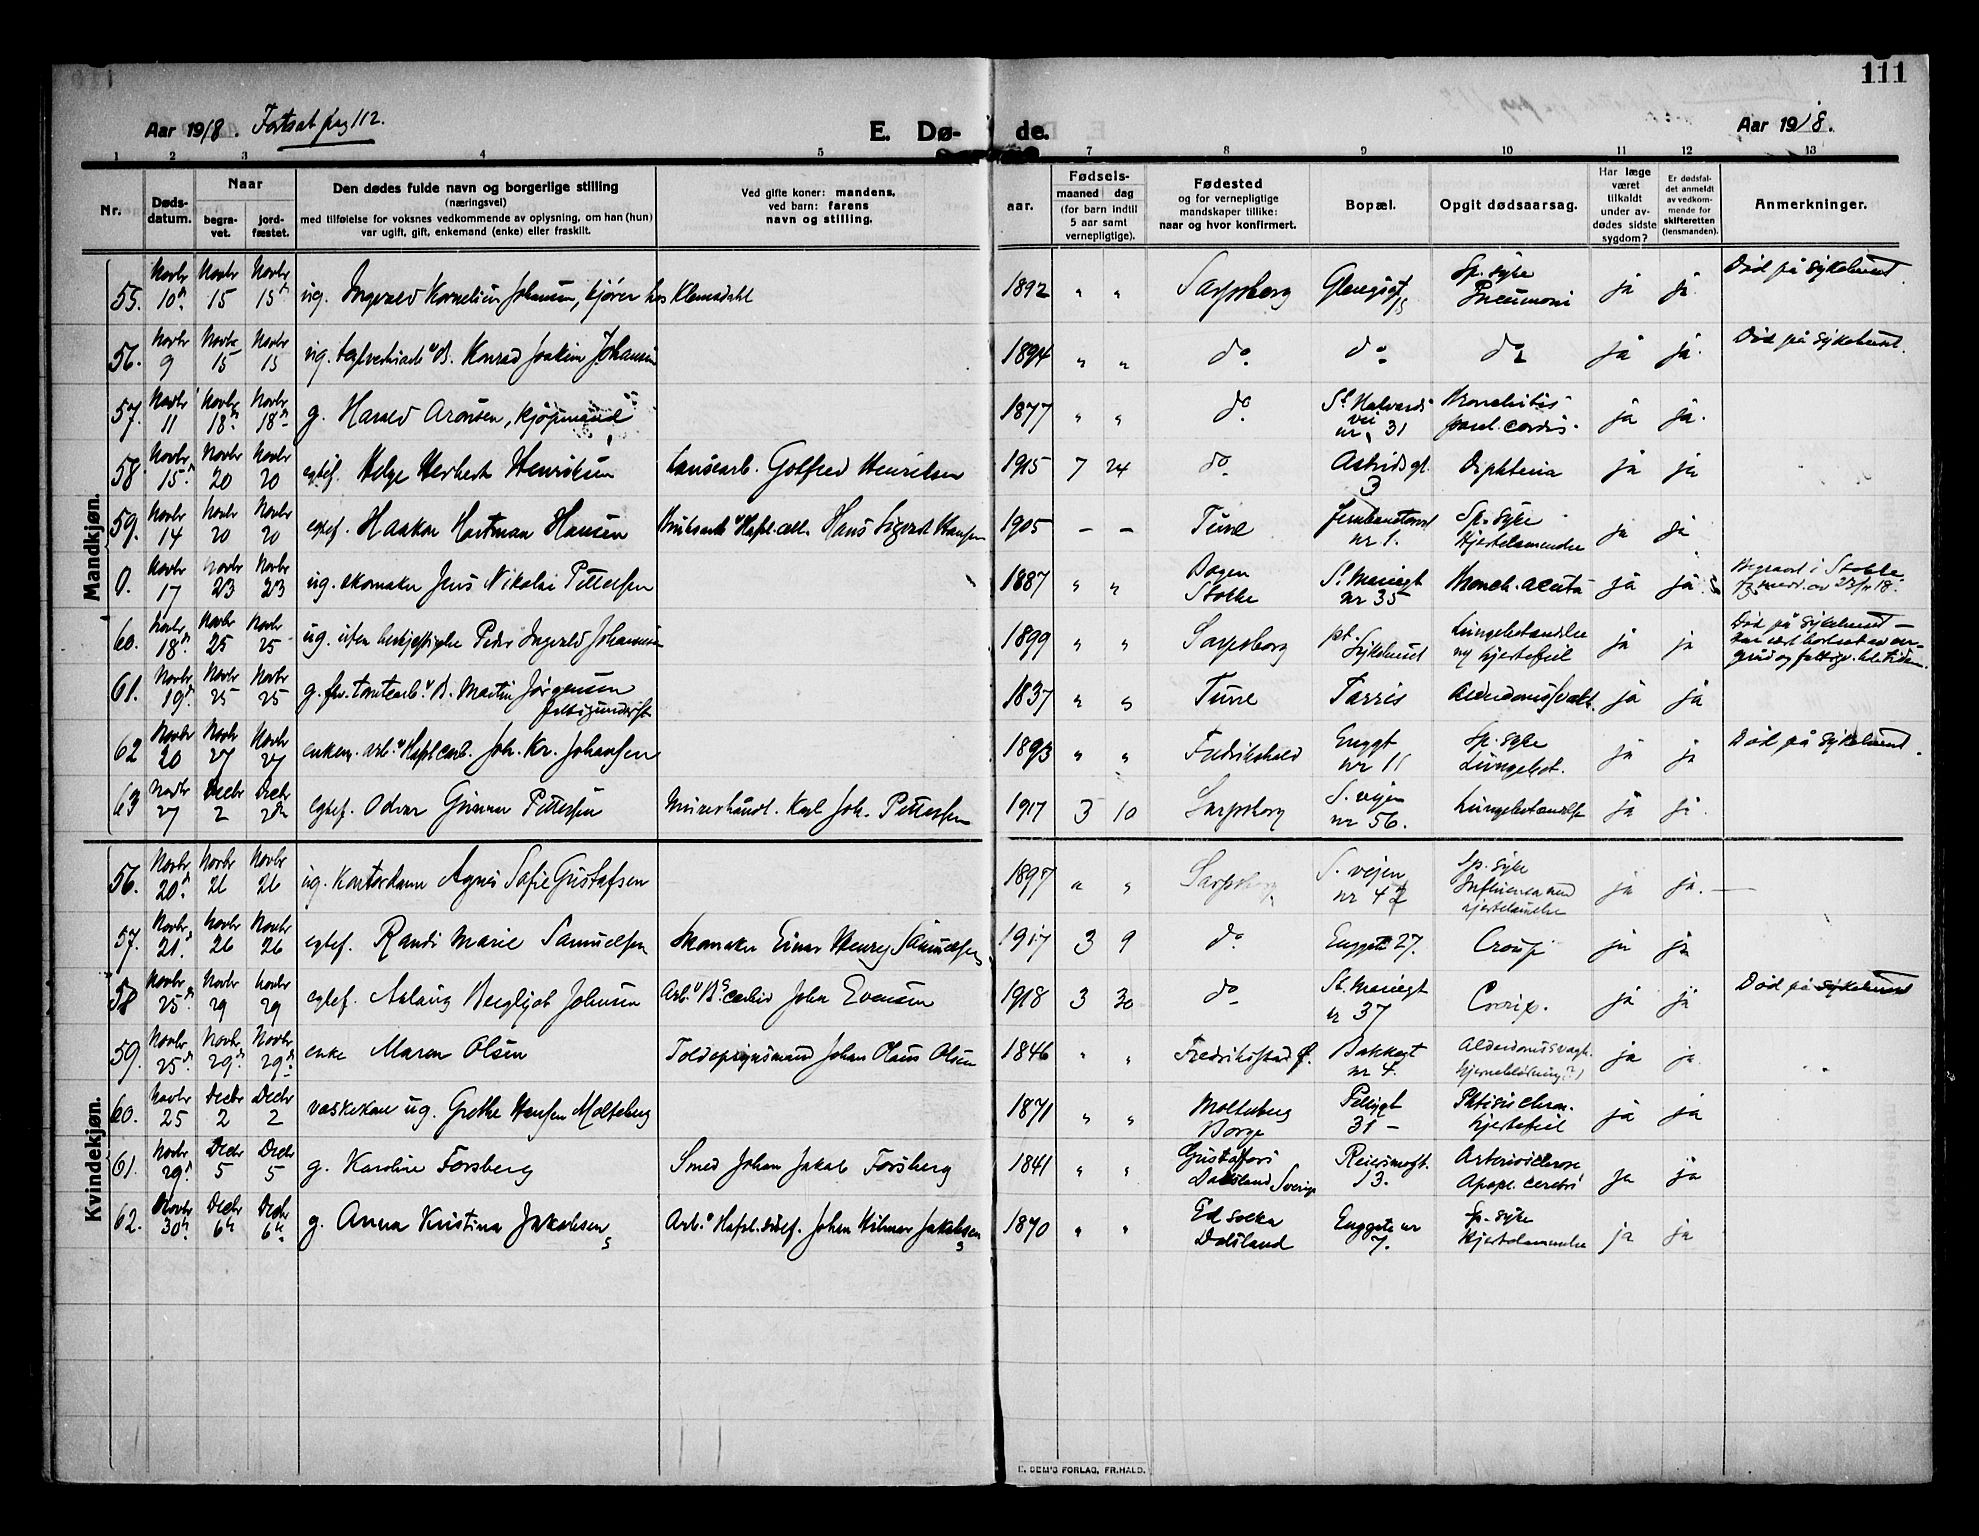 111
Aar 1918. Fortsat pag 112.
E. Dø-de.
Aar 1918.
1 2 3 4 5 7 8 9 10 11 12 13
Nr. Døds-datum. Naar begra-vet. jord-fæstet.
Den dødes fulde navn og borgerlige stilling
(næringsvei)
med tilføielse for voksnes vedkommende av oplysning, om han (hun)
var ugift, gift, enkemand (enke) eller fraskilt.
Ved gifte koner: mandens,
ved barn: farens
navn og stilling.
Fødsels-
aar. maaned dag
(for barn indtil
5 aar samt
vernepligtige).
Fødested
og for vernepligtige
mandskaper tillike:
naar og hvor konfirmert.
Bopæl.
Opgit dødsaarsag.
Har læge
været
tilkaldt
under av-
dødes sidste
sygdom?
Er dødsfal-
det anmeldt
av vedkom-
mende for
skifteretten
(lensmanden).
Anmerkninger.
Mandkjøn.
55. Novbr 10 Novbr 15 Novbr 15 ug. Ingvald Kornelius Johansen, kjører hos Klemsdahl 1892 " " Sarpsborg Glengsgt Sp. syke Pneumoni ja ja Død på sykehuset
56. Novbr 9 Novbr 15 Novbr 15 ug. Konrad Joakim Johansen 1894 " " do do do ja ja. Død på sykehuset.
57. Novbr 11 Novbr 18 Novbr 18 g. Harald Aronsen, kjøpmand 1877 " " do St. Halvards vei nr. 31 Bronchitis paral. cordis. ja ja.
58 Novbr 15 Novbr 20 Novbr 20 egtef. Helge Herbert Henriksen Golfred Henriksen 1915 7 24 do Astridsgt. 3 Diphteria ja ja
59. Novbr 14 Novbr 20 Novbr 20 egtef. Haakon Hartman Hansen Hans Sigvart Hansen 1905 – – Tune nr 1. Sp. syke Hjertelammelse ja ja
0. Novbr 17 Novbr 23 Novbr 23 ug. skomaker Jens Nikolai Pettersen 1887 " " Stokke St. Mariegt nr 35 Bronch. acuta ja ja. Begravet i Stokke
60. Novbr 18 Novbr 25 Novbr 25 ug. uten beskjeftigelse Peder Ingvald Johansen 1899 " " Sarpsborg pt. Sykehuset Lungebetændelse og hjertefeil ja ja Død på sykehuset –
61. Novbr 19 Novbr 25 Novbr 25 g. Martin Jørgensen fattigunderst. 1837 " " Tune Tarris Alderdomssvakh. ja ja
62 Novbr 20 Novbr 27 Novbr 27 enkem. Joh. Kr. Johansen 1893 " " Fredrikshald Enggt nr 11 Sp. syke Lungebet. ja ja Død på sykehuset.
63 Novbr 27 Decbr 2 Decbr 2 Egtef. Odvar Gunnar Pettersen Murerhandl. Karl Joh. Pettersen 1917 3 10 Sarpsborg S. vejen nr 56. Lungebetændelse ja ja.
Kvindekjøn.
56. Novbr 20 Novbr 26 Novbr 26 ug. Kontordame Agnes Sofie Gustafsen 1897 " " Sarpsborg S. vejen nr 42 Sp. syke Influensa med hjertelamelse ja ja. –
57. Novbr 21 Novbr 26 Novbr 26 egtef. Randi Marie Samuelsen Skomaker Einar Henry Samuelsen 1917 3 9 do Enggate 27. Croup ja ja
58 Novbr 25 Novbr 29 Novbr 29 egtef. Aslaug Bergljot Johnsen John Evensen 1918 3 30 do St. Mariegt nr 37 Croup. ja ja Død på sykehuset
59. Novbr 25 Novbr 29 Novbr 29 enke Maren Olsen Toldopsynsmand Johan Olaus Olsen 1846 " " Fredrikstad Ø. Bakkegt nr 4. Alderdomssvagh. hjerneblødning? ja ja.
60. Novbr 25 Decbr 2 Decbr 2 vaskekone ug. Grethe Hansen Molteberg 1871 " " Molteberg Borge Pellygt 31 – Phtisis chron. hjertefeil ja ja
61. Novbr 29 Decbr 5 Decbr 5 g. Karoline Forsberg Smed Johan Jakob Forsberg 1841 " " Gustafors Dalsland Sverige Reiersensgt. 13. Arteriosclerose Apopl. cerebri ja ja
62. Novbr 30 Decbr 6 Decbr 6 g. Anna Kristina Jakobsen Johan Hilmar Jakobsen 1870 " " Dalsland Enggate nr 7. Sp. syke Hjertelammelse ja ja
E. SEM'S FORLAG, FR.HALD.